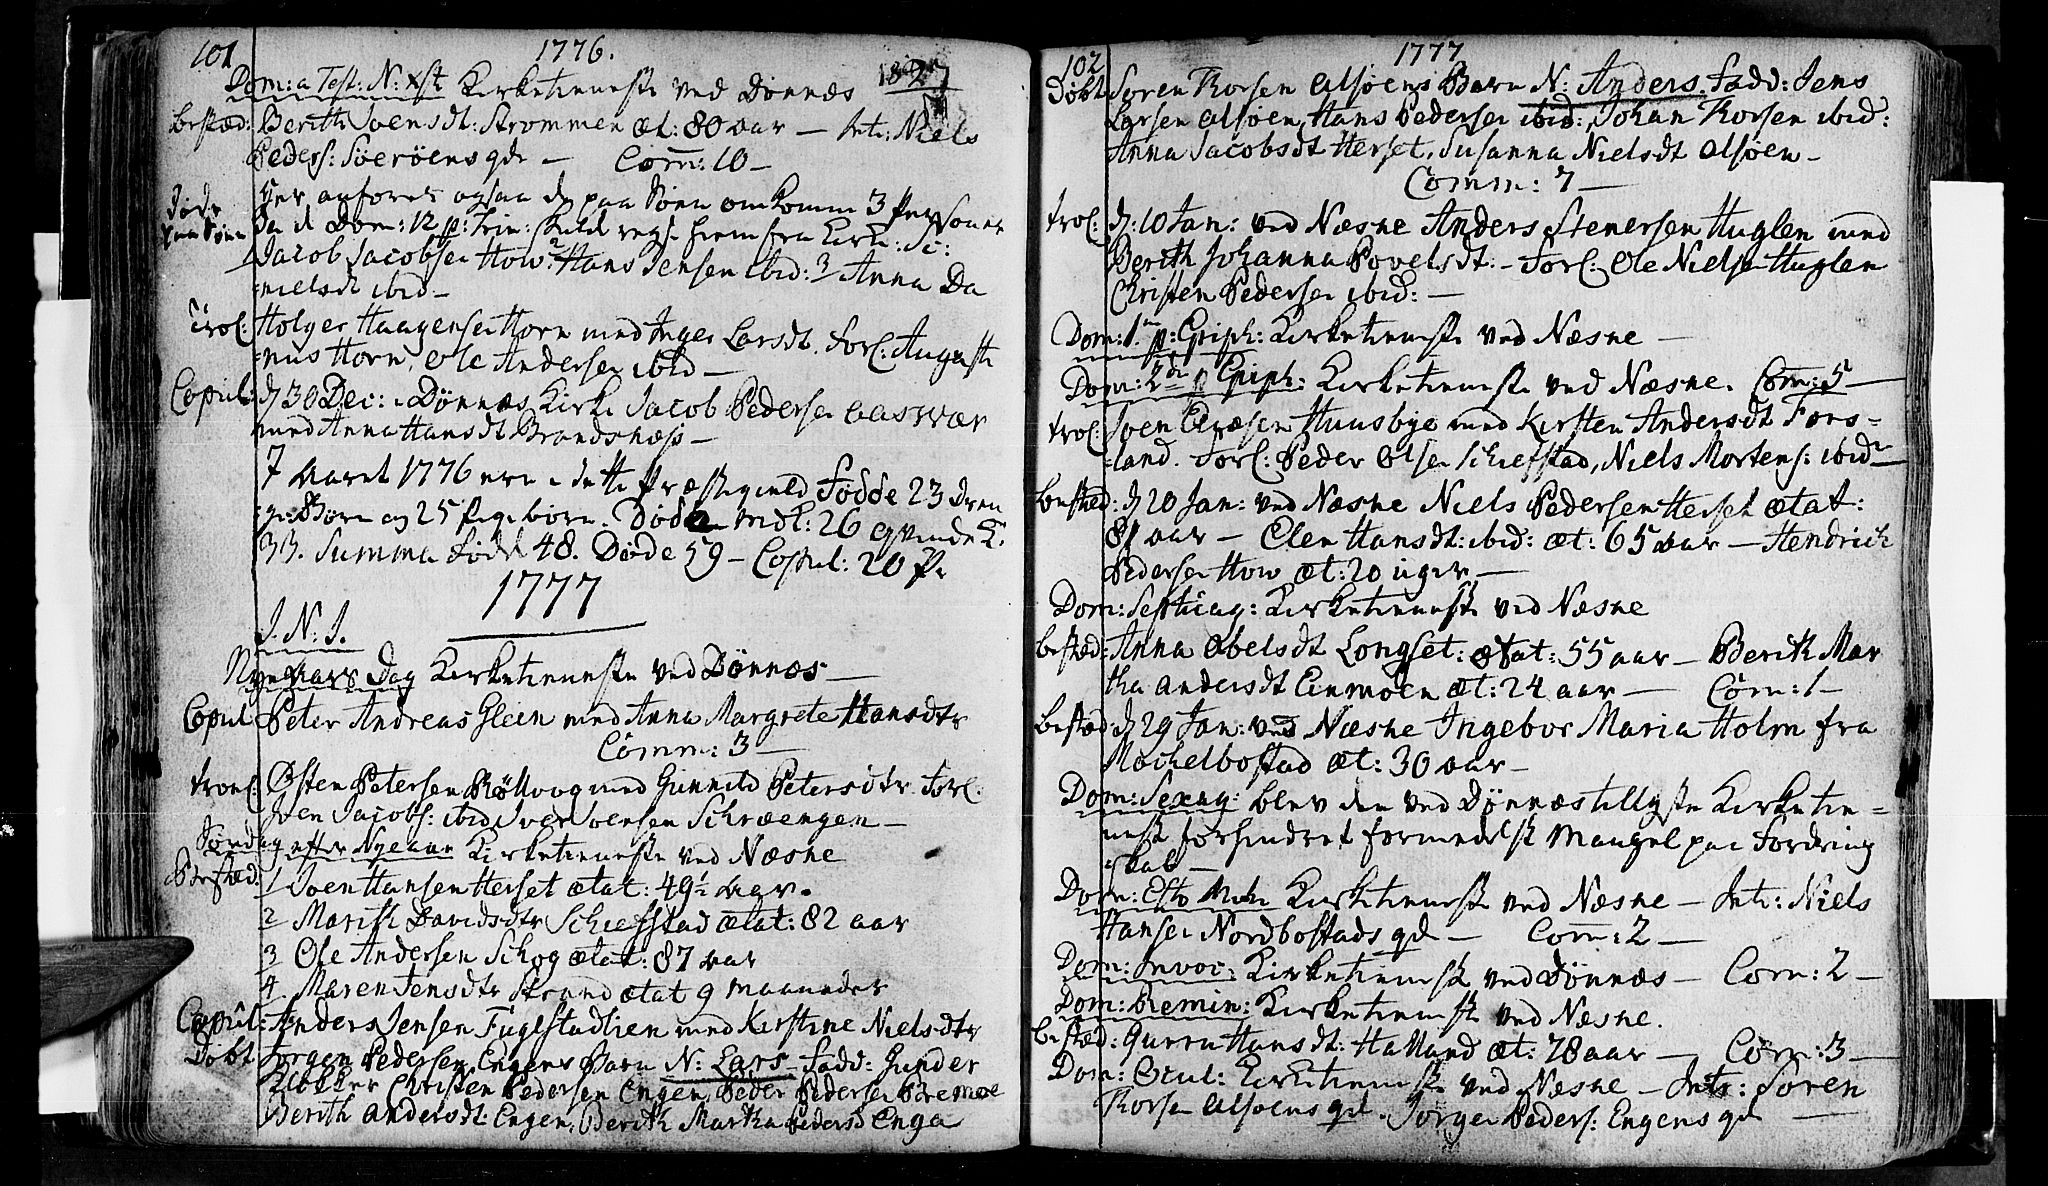 101
1776.
Dom: a Test: N: Xsti Kirketieneste ved Dønnæs
bested: Berith Svensdt: Strømmen æt: 80 aar — Intr: Niels
Peders: Sørøens qde — Com̄: 10 —
Døde paa Søen
Her anføres ogsaa de paa Søen omkomne 3 Personer
da d Dom: 12 p: Trin: skulde reyse hiem fra Kirk: Sc:
1 Jacob Jacobsen How. 2 Hans Jensen ibid: 3 Anna Da
=nielsdt ibid —
Trol: Holger Haagensen Horn med Inger Larsdt. Forl: Augusti
=nus Horn, Ole Andersen ibid —
Copul: d 30 Dec: i Dønnæs Kirke Jacob Pedersen Aasvær
med Anna Hansdt Brandsnæss —
I Aaret 1776 ere i dette Præstegield Fødde 23 Dren
=ge Børn og 25 Pigebørn. Døde mdk: 26 qvindek:
33. Summa Fødde 48. Døde 59 — Copul: 20 Pr
1777
I. N: J.
Nye Aars Dag Kirketieneste ved Dønnæs —
Copul Peter Andreas Gleen med Anna Margrete Hansdtr
Com̄: 3 —
trol: Østen Petersen Røllvog med Gunnild Petersdtr. Forl:
Iven Jacobs: ibid Iver Svensen Schræengen —
Søndag efter Nyeaar Kirketieneste ved Næsne
Bested: 1 Sven Hansen Herset ætat: 49½ aar.
2 Marith Davidsdtr Schiefstad ætat: 82 aar
3 Ole Andersen Schog ætat: 87 aar
4. Maren Jensdtr Strand ætat 9 maaneder
Copul: Anders Jensen Fuglstadlien med Kirstine Nielsdtr
Døbt Jørgen Pedersen Engens Barn N: Lars — Fadd: Gunder
Christen Pedersen Engen, Peder Pedersen Bremoe
Berith Andersdt: Engen, Berith Martha Pedersd Enga
102
1777
Døbt Søren Thorsen Alsøens Barn N: Anders. Fadd: Jens
Larsen Alsøen, Hans Pedersen ibid:, Johan Thorsen ibid:
Anna Jacobsdt Herset, Susanna Nielsdt Alsøen —
Comm: 7 —
trol: d: 10 Jan: ved Næsne Anders Stenersen Huglen med
Berith Johanna Povelsdt: — Forl: Ole Nielsen Huglen
Christen Pedersen ibid: —
Dom: 1. p: Epiph: Kirketieneste ved Næsne —
Dom: 2 p Epiph: Kirketieneste ved Næsne. Com̄: 5 —
trol: Sven Huusbye med Kirsten Andersdt Fors=
=land. Forl: Peder Olsen Schiefstad, Niels Mortens: ibid —
bested: d 20 Jan: ved Næsne Niels Pedersen Herset ætat:
81 aar — Elen Hansdt: ibid: æt: 65 aar — Hendrich
Pedersen How æt: 20 uger —
Dom: Septuag: Kirketieneste ved Næsne
bested: Anna Abelsdt Longset: ætat: 55 aar — Berith Mar
tha Andersdt Einmoen æt: 24 aar — Com̄: 1 —
bested: d 29 Jan: ved Næsne Ingebor Maria Holm fra
Mochelbostad æt: 30 aar —
Dom: Sexag: blev den ved Dønnæs tillyste Kirketie=
=neste forhindret formedelst Mangel paa Fordring
skab —
Dom: Esto Mihi Kirketieneste ved Næsne — Intr: Niels
Hansen Nordbostads qde — Com̄: 2 —
Dom: Invoc: Kirketieneste ved Dønnæs — Com̄: 2 —
Dom: Remin: Kirketieneste ved Næsne.
bested: Gurru Hansdt: Halland æt: 78 aar — Com̄: 3 —
Dom: Ocul: Kirketieneste ved Næsne — Intr: Søren
Thorsen Alsøens qd. Jørgen Peders: Engens qd —